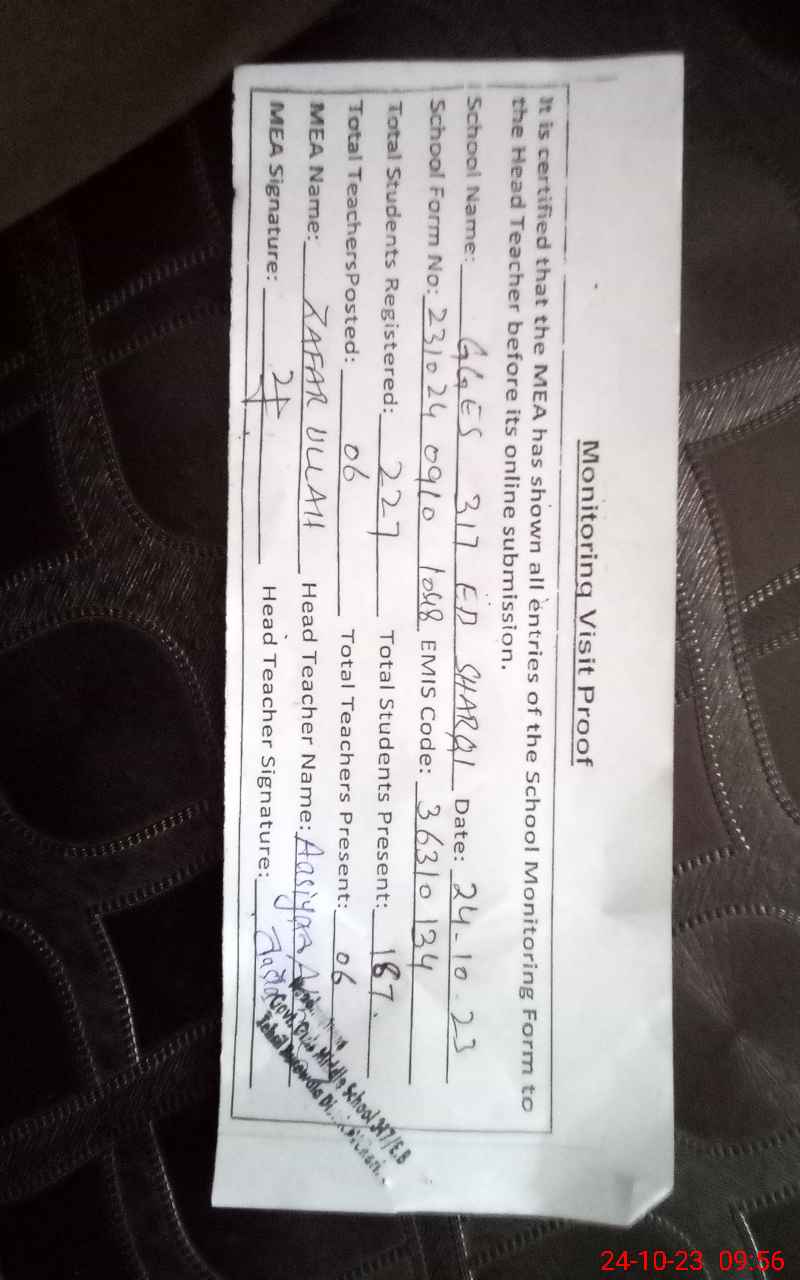 Monitoring Visit Proof
It is certified that the MEA has shown all entries of the School Monitoring Form to
the Head Teacher before its online submission.
School Name: GGES 317 EB SHARQI Date: 24-10-23
School Form No: 231024 0910 1048 EMIS Code: 36310134
Total Students Registered: 227 Total Students Present: 187.
Total TeachersPosted: 06 Total Teachers Present: 06
MEA Name: ZAFAR ULLAH Head Teacher Name: Aasiyaa
MEA Signature: Head Teacher Signature:
Govt. Girls Middle School 317/E.B
24-10-23 09:56